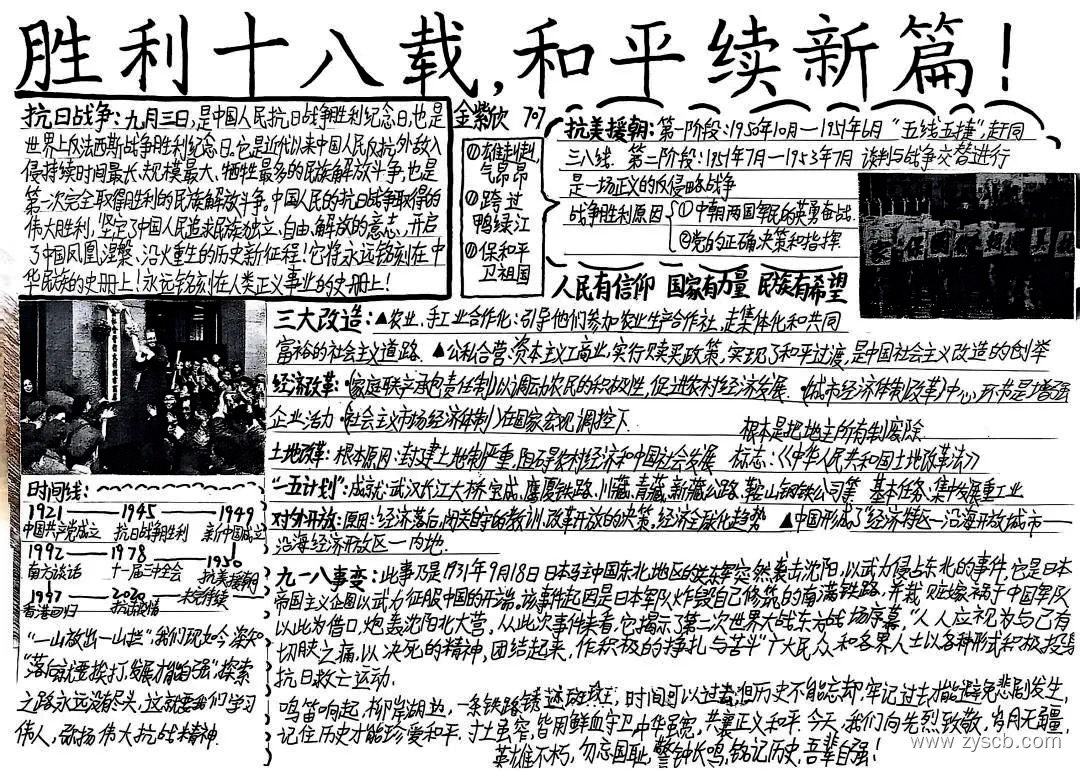 胜利十八载,和平续新篇!
抗日战争:九月三日,是中国人民抗日战争胜利纪念日,也是
世界上反法西斯战争胜利纪念日.它是近代以来中国人民反抗外敌入
侵持续时间最长、规模最大、牺牲最多的民族解放斗争,也是
第一次完全取得胜利的民族解放斗争,中国人民的抗日战争取得的
伟大胜利,坚定了中国人民追求民族独立、自由、解放的意志,开启
了中国凤凰涅槃、浴火重生的历史新征程!它将永远铭刻在中
华民族的史册上!永远铭刻在人类正义事业的史册上!
金紫欣 707
①雄赳赳,
气昂昂
②跨过
鸭绿江
③保和平
卫祖国
抗美援朝:第一阶段:1950年10月—1951年6月 "五战五捷",赶回
三八线. 第二阶段:1951年7月—1953年7月 谈判与战争交替进行
是一场正义的反侵略战争
战争胜利原因 ①中朝两国军民的英勇奋战.
②党的正确决策和指挥
人民有信仰 国家有力量 民族有希望
三大改造:▲农业、手工业合作化:引导他们参加农业生产合作社,走集体化和共同
富裕的社会主义道路. ▲公私合营:资本主义工商业,实行赎买政策,实现了和平过渡,是中国社会主义改造的创举
经济改革:(家庭联产承包责任制)以调动农民的积极性,促进农村经济发展. (城市经济体制改革)中心环节是增强
企业活力.(社会主义市场经济体制)在国家宏观调控下.
根本是把地主所有制废除
土地改革:根本原因:封建土地制严重,阻碍农村经济和中国社会发展 标志:《中华人民共和国土地改革法》
"一五计划":成就:武汉长江大桥完成、鹰厦铁路、川藏、青藏、新藏公路、鞍山钢铁公司等 基本任务、集中发展重工业
对外开放:原因:经济落后,闭关自守的教训,改革开放的决策,经济全球化趋势 ▲中国形成了经济特区—沿海开放城市—
沿海经济开放区—内地.
时间线:
1921——1945——1949
中国共产党成立 抗日战争胜利 新中国成立
1992——1978——1950
南方谈话 十一届三中全会 抗美援朝
1997——2020——未完待续
香港回归 抗疫情
"一山放出一山拦",我们现如今深知
"落后就要挨打,发展才能自强"探索
之路永远没有尽头,这就要我们学习
伟人,弘扬伟大抗战精神.
九一八事变:此事乃是1931年9月18日日本驻中国东北地区的关东军突然袭击沈阳,以武力侵占东北的事件,它是日本
帝国主义企图以武力征服中国的开端,该事件起因是日本军队炸毁自己修筑的南满铁路,并栽赃嫁祸于中国军队
以此为借口,炮轰沈阳北大营,从此次事件来看,它揭示了第二次世界大战东方战场序幕,"人人应视为与己有
切肤之痛,以决死的精神,团结起来,作积极的挣扎与苦斗"广大民众和各界人士以各种形式积极投身
抗日救亡运动.
鸣笛响起,柳岸湖边,一条铁路锈迹斑斑,时间可以过去,但历史不能忘却,牢记过去才能避免悲剧发生,
记住历史才能珍爱和平.寸土虽窄,皆用鲜血守卫,中华虽宽,共襄正义和平.今天,我们向先烈致敬,岁月无疆,
英雄不朽,勿忘国耻,警钟长鸣,铭记历史,吾辈自强!
www.zyscb.com